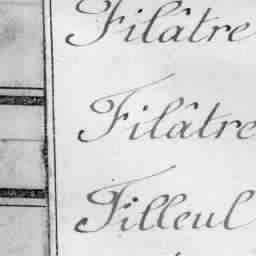 Filâtre
Filâtre
Filleul